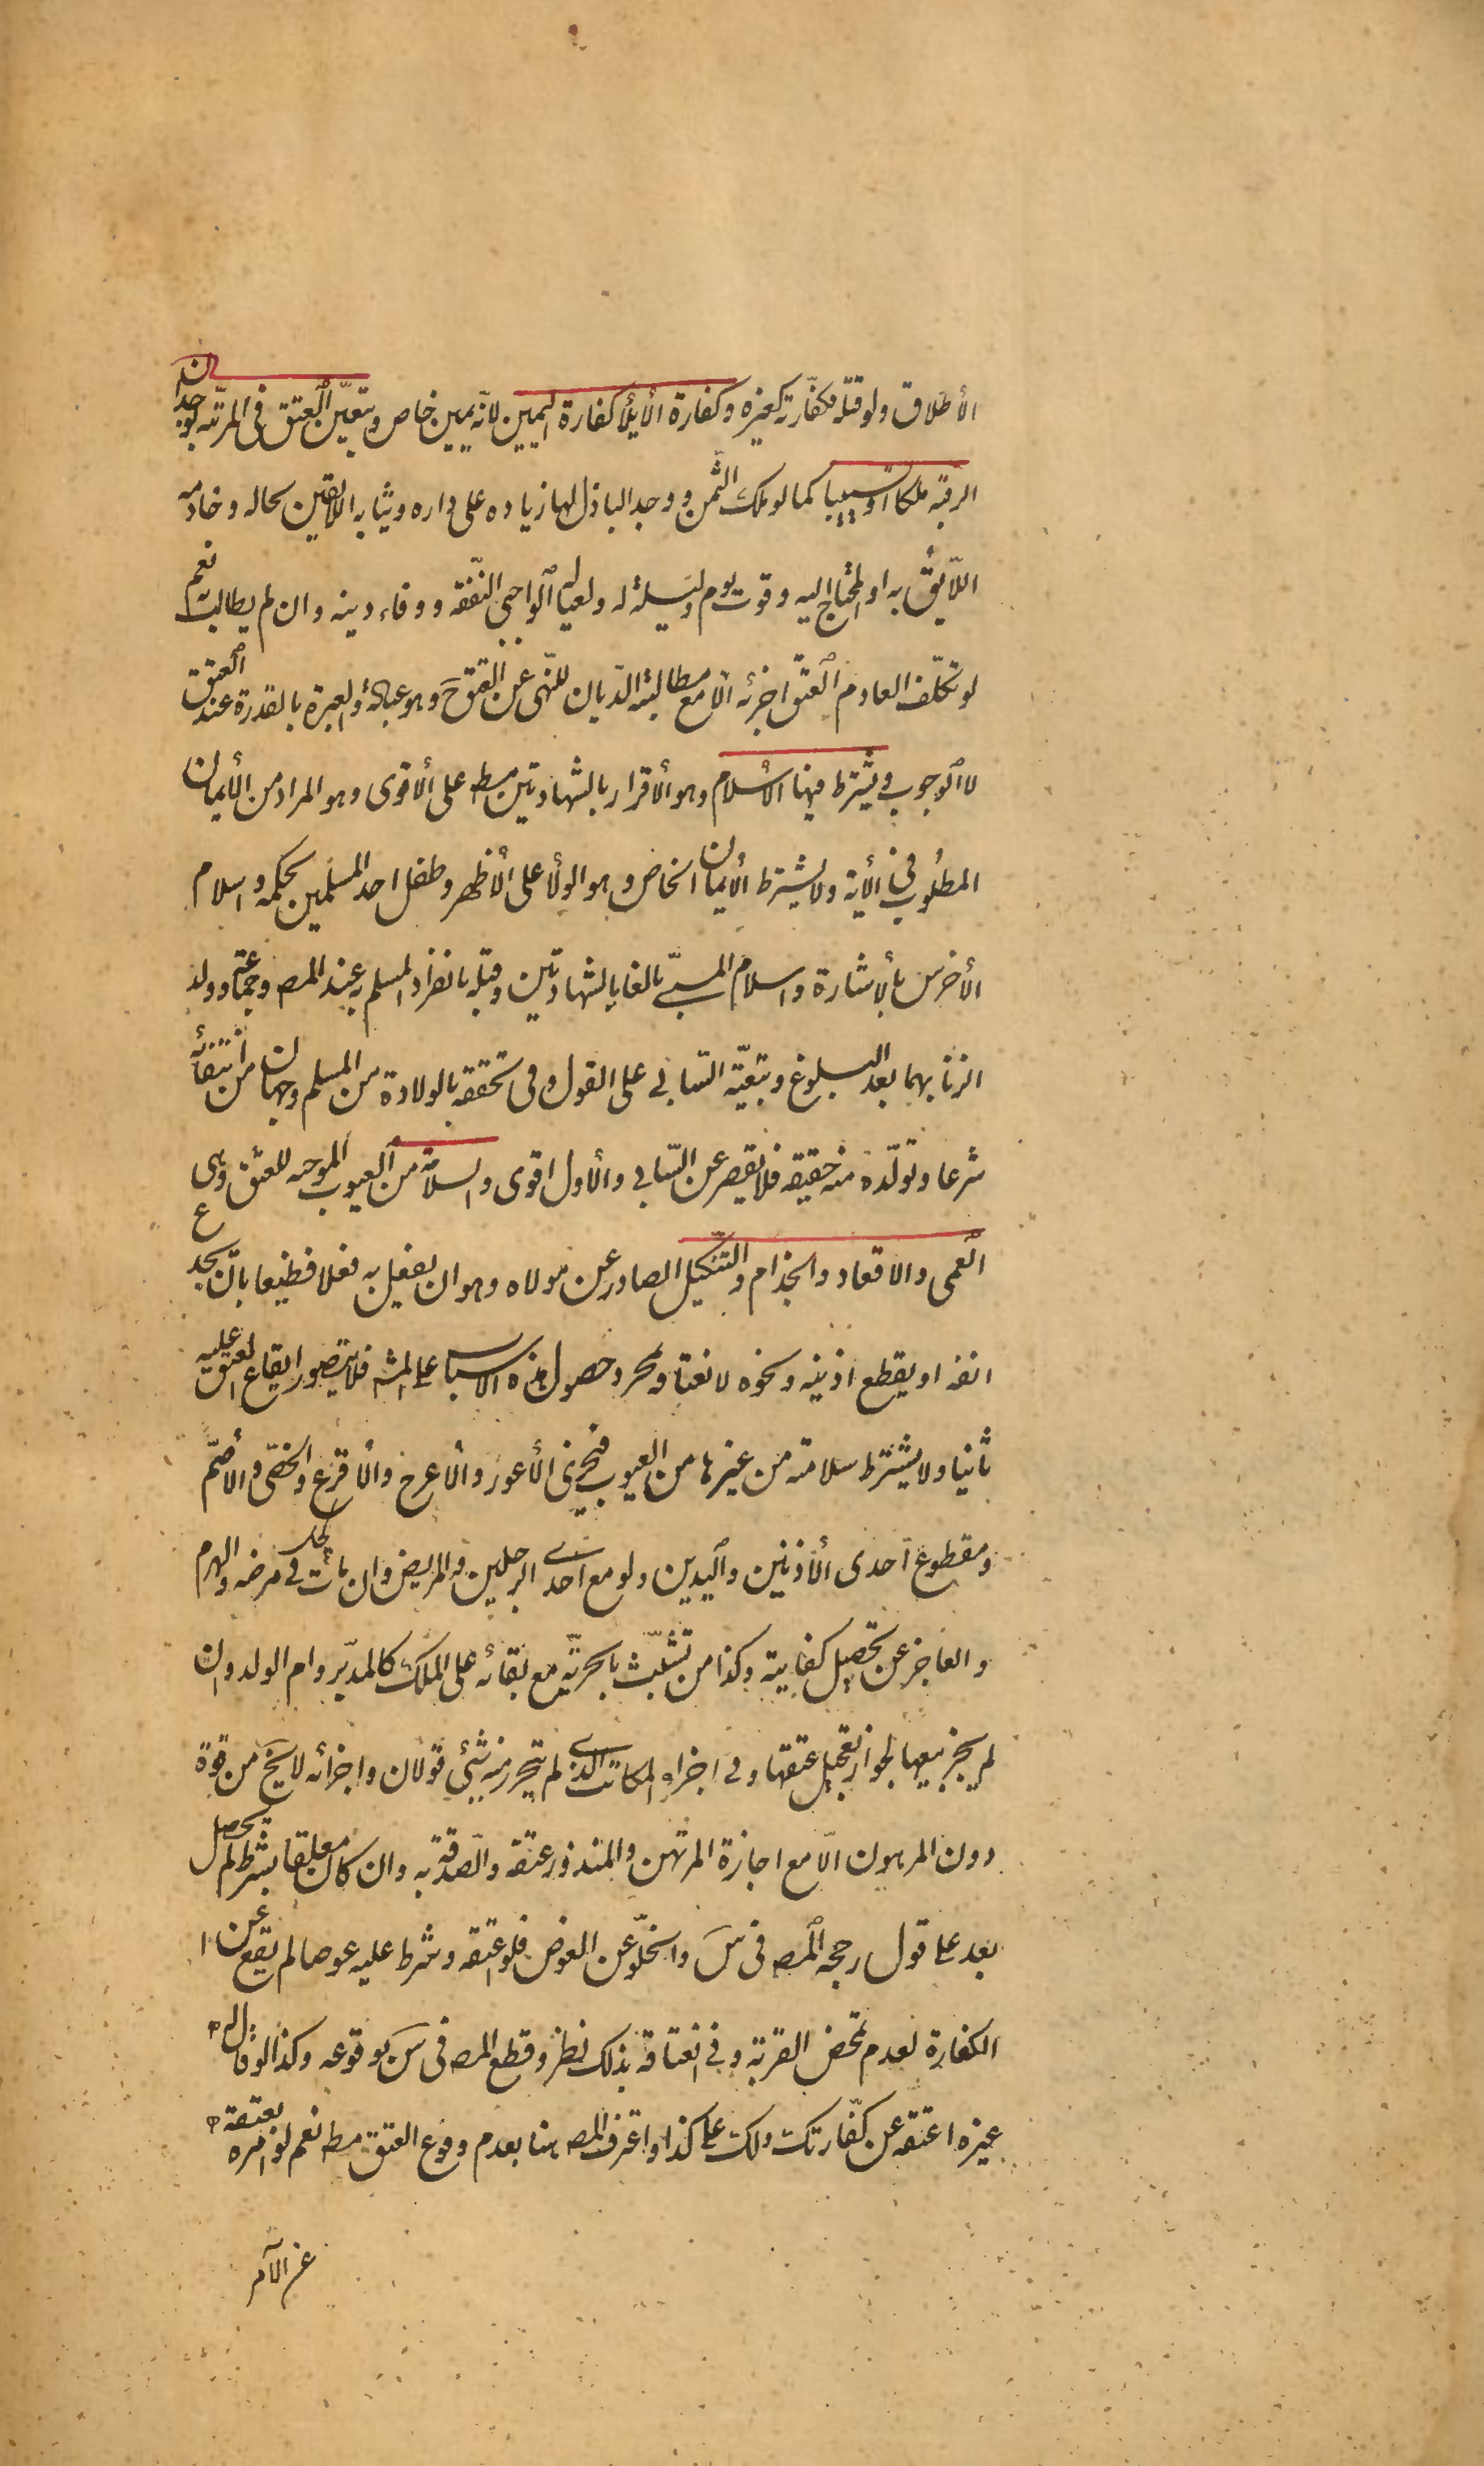 الأطلاق ولو قتله فكفارته كغيره وكفارة الأيلا كفارة اليمين لانه يمين خاص ويتعين العتق فى المرتبه بوجدان
الرقبة ملكا او تسبيبا كما لو ملك الثمن و وجد الباذل لها زياده على داره وثيابه اللايقين بحاله وخادمه
اللّايق به او المحتاج اليه وقوت يوم وليلة له ولعياله الواجبى النّفقه و وفاء دينه وان لم يطالب به نعم
لو تكلّف العادم العتق اجزئه الا مع مطالبة الدّيان للنّهى عن العتق ح وهو عبادة والعبرة بالقدرة عند العتق
لا الوجوب ويشترط فيها الأسلام وهو الأقرار بالشهادتين مط على الاقوى وهو المراد من الأيمان
المطلوب فى الأية ولا يشترط الأيمان الخاص وهو الولا على الأظهر وطفل احد المسلمين بحكمه واسلام
الأخرس بألأشارة واسلام المسبىّ بالغا بالشهادتين وقبله بانفراد المسلم به عند المص وجماعة وولد
الزنا بهما بعد البلوغ وتبعيّة السّابى على القول وفى تحققه بالولادة من المسلم وجهان من انتفائه
شرعا وتولّده منه حقيقه فلا يقصر عن السّابى والأول اقوى والسلامة من العيوب الموجبه للعتق وهى
ع
العمى والاقعاد والجذام والتّنكيل الصادر عن مولاه وهو ان يفعل به فعلا فظيعا بان يجدع
انفه او يقطع اذنيه ونحوه لانعتاقه بمجرد حصول هذه الاسباب على المشه فلا يتصور ايقاع العتق عليه
ثانيا ولا يشترط سلامته من غيرها من العيوب فيجزى الأعور والأعرج والأقرع والخصّى والأصّم
ومقطوع احدى الأذنين واليدين ولو مع احدى الرجلين والمريض وان مات فى مرضه والهرم
والعاجز عن تحصيل كفايته وكذا من تشبّث بالحريّة مع بقائه على الملك كالمدبّر وام الولد وان
لم يجز بيعها لجواز تعجيل عتقها وفى اجزاء المكاتب الذى لم يتحرر منه شئى قولان واجزائه لا يخ من قوة
دون المرهون الّا مع اجازة المرتهن والمنذور عتقه والصّدقة به وان كان معلقا بشرط لم يحصل
بعد على قول رجحه المص فى س والخلّو عن العوض فلو اعتقه وشرط عليه عوضا لم يقع عن
الكفارة لعدم تمحض القربة وفى انعتاقه بذلك نظر وقطع المص فى س بوقوعه وكذا لو قال له
غيره اعتقه عن كفّارتك ولك على كذا واعترف المص هنا بعدم وقوع العتق مط نعم لو امره بعتقه
عن الآمر